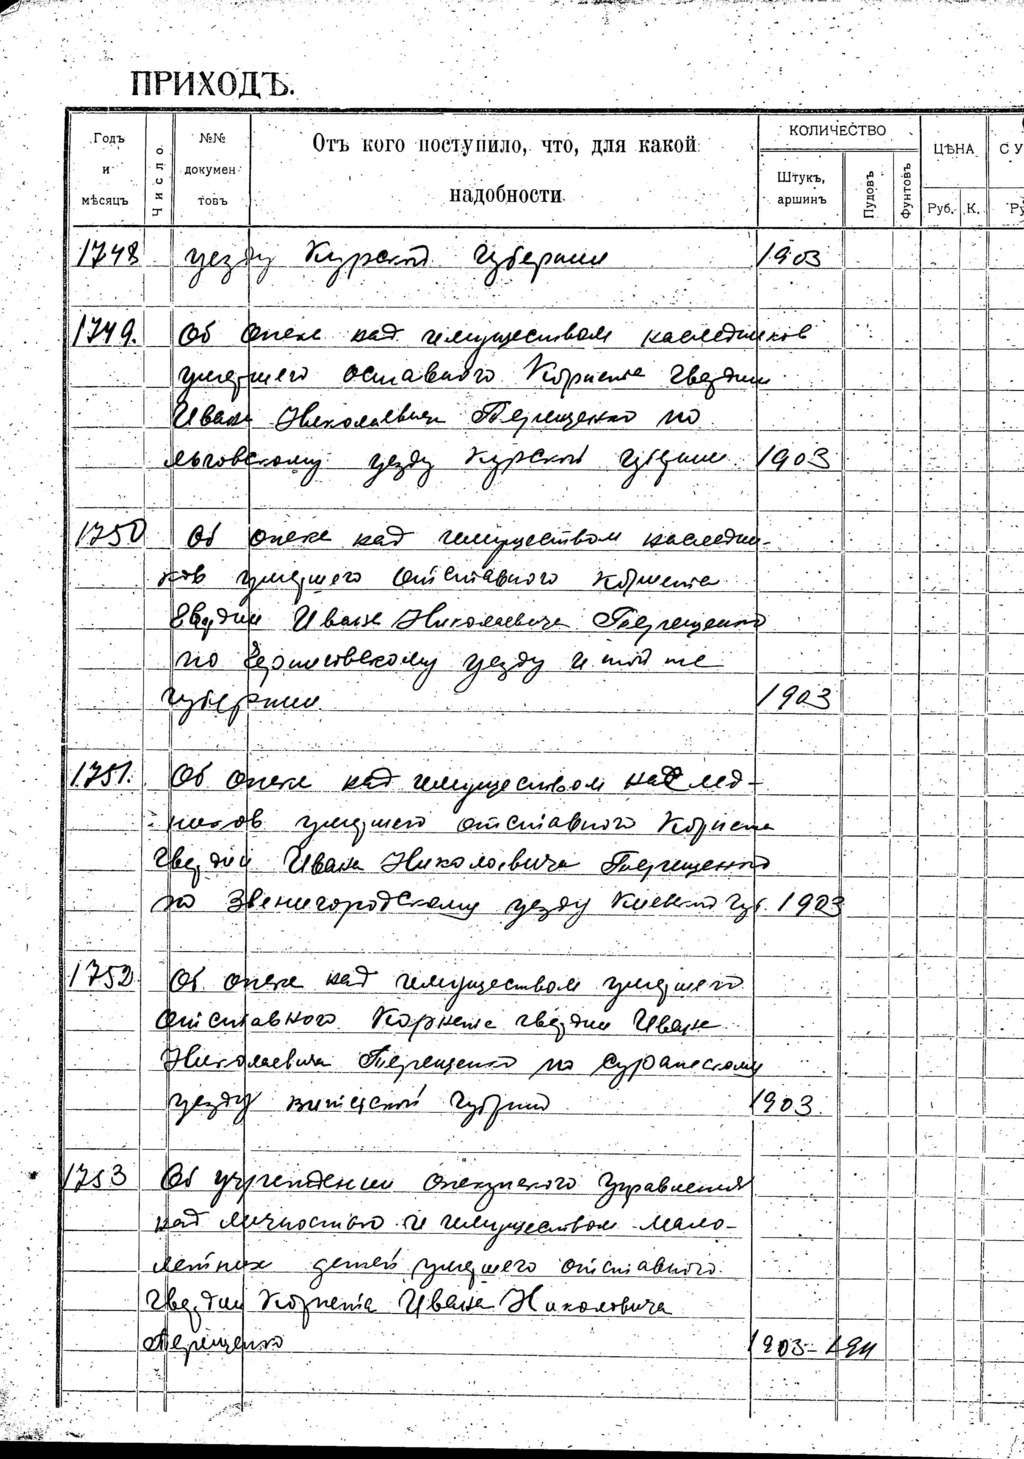 ПРИХОДЪ.
Годъ и мѣсяцъ
Число
№№ докумен- товъ
Отъ кого поступило, что, для какой надобности.
КОЛИЧЕСТВО
Штукъ, аршинъ
Пудовъ
Фунтовъ
ЦѢНА
Руб. К.
С У
1748 уезду Курской губернии 1903
1749. Об опеке над имуществом наследников
умершего оставного Корнета гвардии
Ивана Николаевича Терещенко по
льговскому уезду Курской губернии 1903
1750 Об опеке над имуществом наследни-
ков умершего отставного корнета
гвардии Ивана Николаевича Терещенко
по уезду и той же
губернии 1903
1751. Об опеке над имуществом наслед-
ников умершего отставного Корнета
гвардии Ивана Николаевича Терещенко
по Звенигородскому уезду Киевской губ. 1903
1752 Об опеке над имуществом умершего
отставного Корнета гвардии Ивана
Николаевича Терещенко по Суражскому
уезду витебской губернии 1903
1753 Об учреждении опекунского Управления
над личностью и имуществом мало-
летних детей умершего отставного
гвардии Корнета Ивана Николовича
Терещенко 1903-